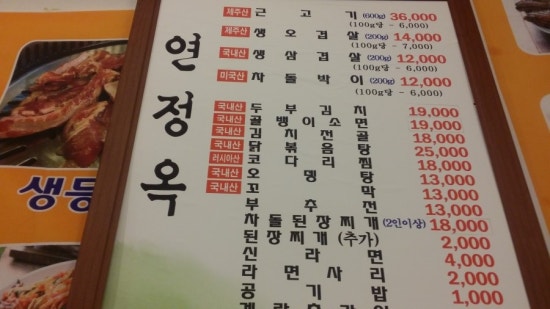 연정옥
생등
제주산 근고기 (600g) 36,000
(100g당 - 6,000)
제주산 생오겹살 (200g) 14,000
(100g당 - 7,000)
국내산 생삼겹살 (200g) 12,000
(100g당 - 6,000)
미국산 차돌박이 (200g) 12,000
(100g당 - 6,000)
국내산 두부김치 19,000
국내산 골뱅이소면 19,000
국내산 김치전골 18,000
국내산 닭볶음탕 25,000
러시아산 코다리찜 18,000
국내산 오뎅탕 13,000
국내산 꼬막 13,000
부추전 13,000
차돌된장찌개 (2인이상) 18,000
된장찌개(추가) 2,000
신라면 4,000
라면사리 2,000
공기밥 1,000